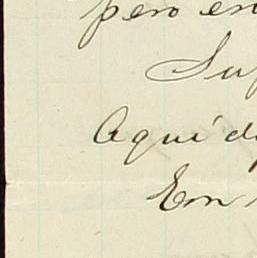 pero en
Su
Aquí d
Em